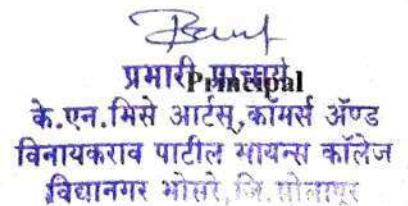 प्रभारी प्राचार्य
Principal
के.एन.भिसे आर्टस्,कॉमर्स अॅण्ड
विनायकराव पाटील सायन्स कॉलेज
विद्यानगर भोसरे,जि.सोलापूर